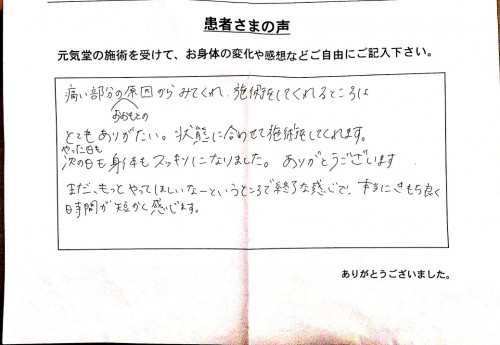 患者さまの声
元気堂の施術を受けて、お身体の変化や感想などご自由にご記入下さい。
痛い部分の原因からみてくれ、施術をしてくれるところは
おおもとの
とてもありがたい。状態に合わせて施術をしてくれます。
やった日も
次の日も身体もスッキリになりました。ありがとうございます
まだ、もっとやってほしいなーというところで終了な感じで、本当にきもち良く
時間が短かく感じます。
ありがとうございました。